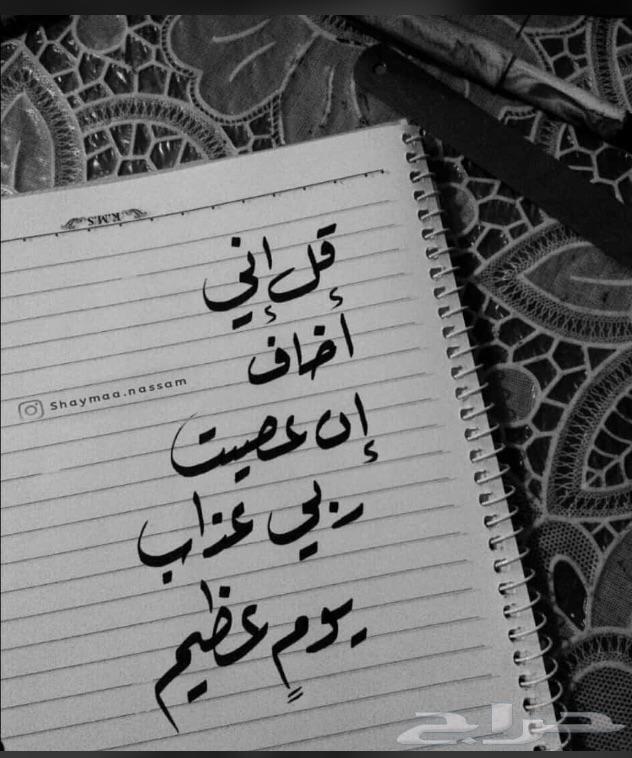 R.M.S
قل إني
أخاف
Shaymaa.nassam
إن عصيت
ربي عذاب
يومٍ عظيم
حراج